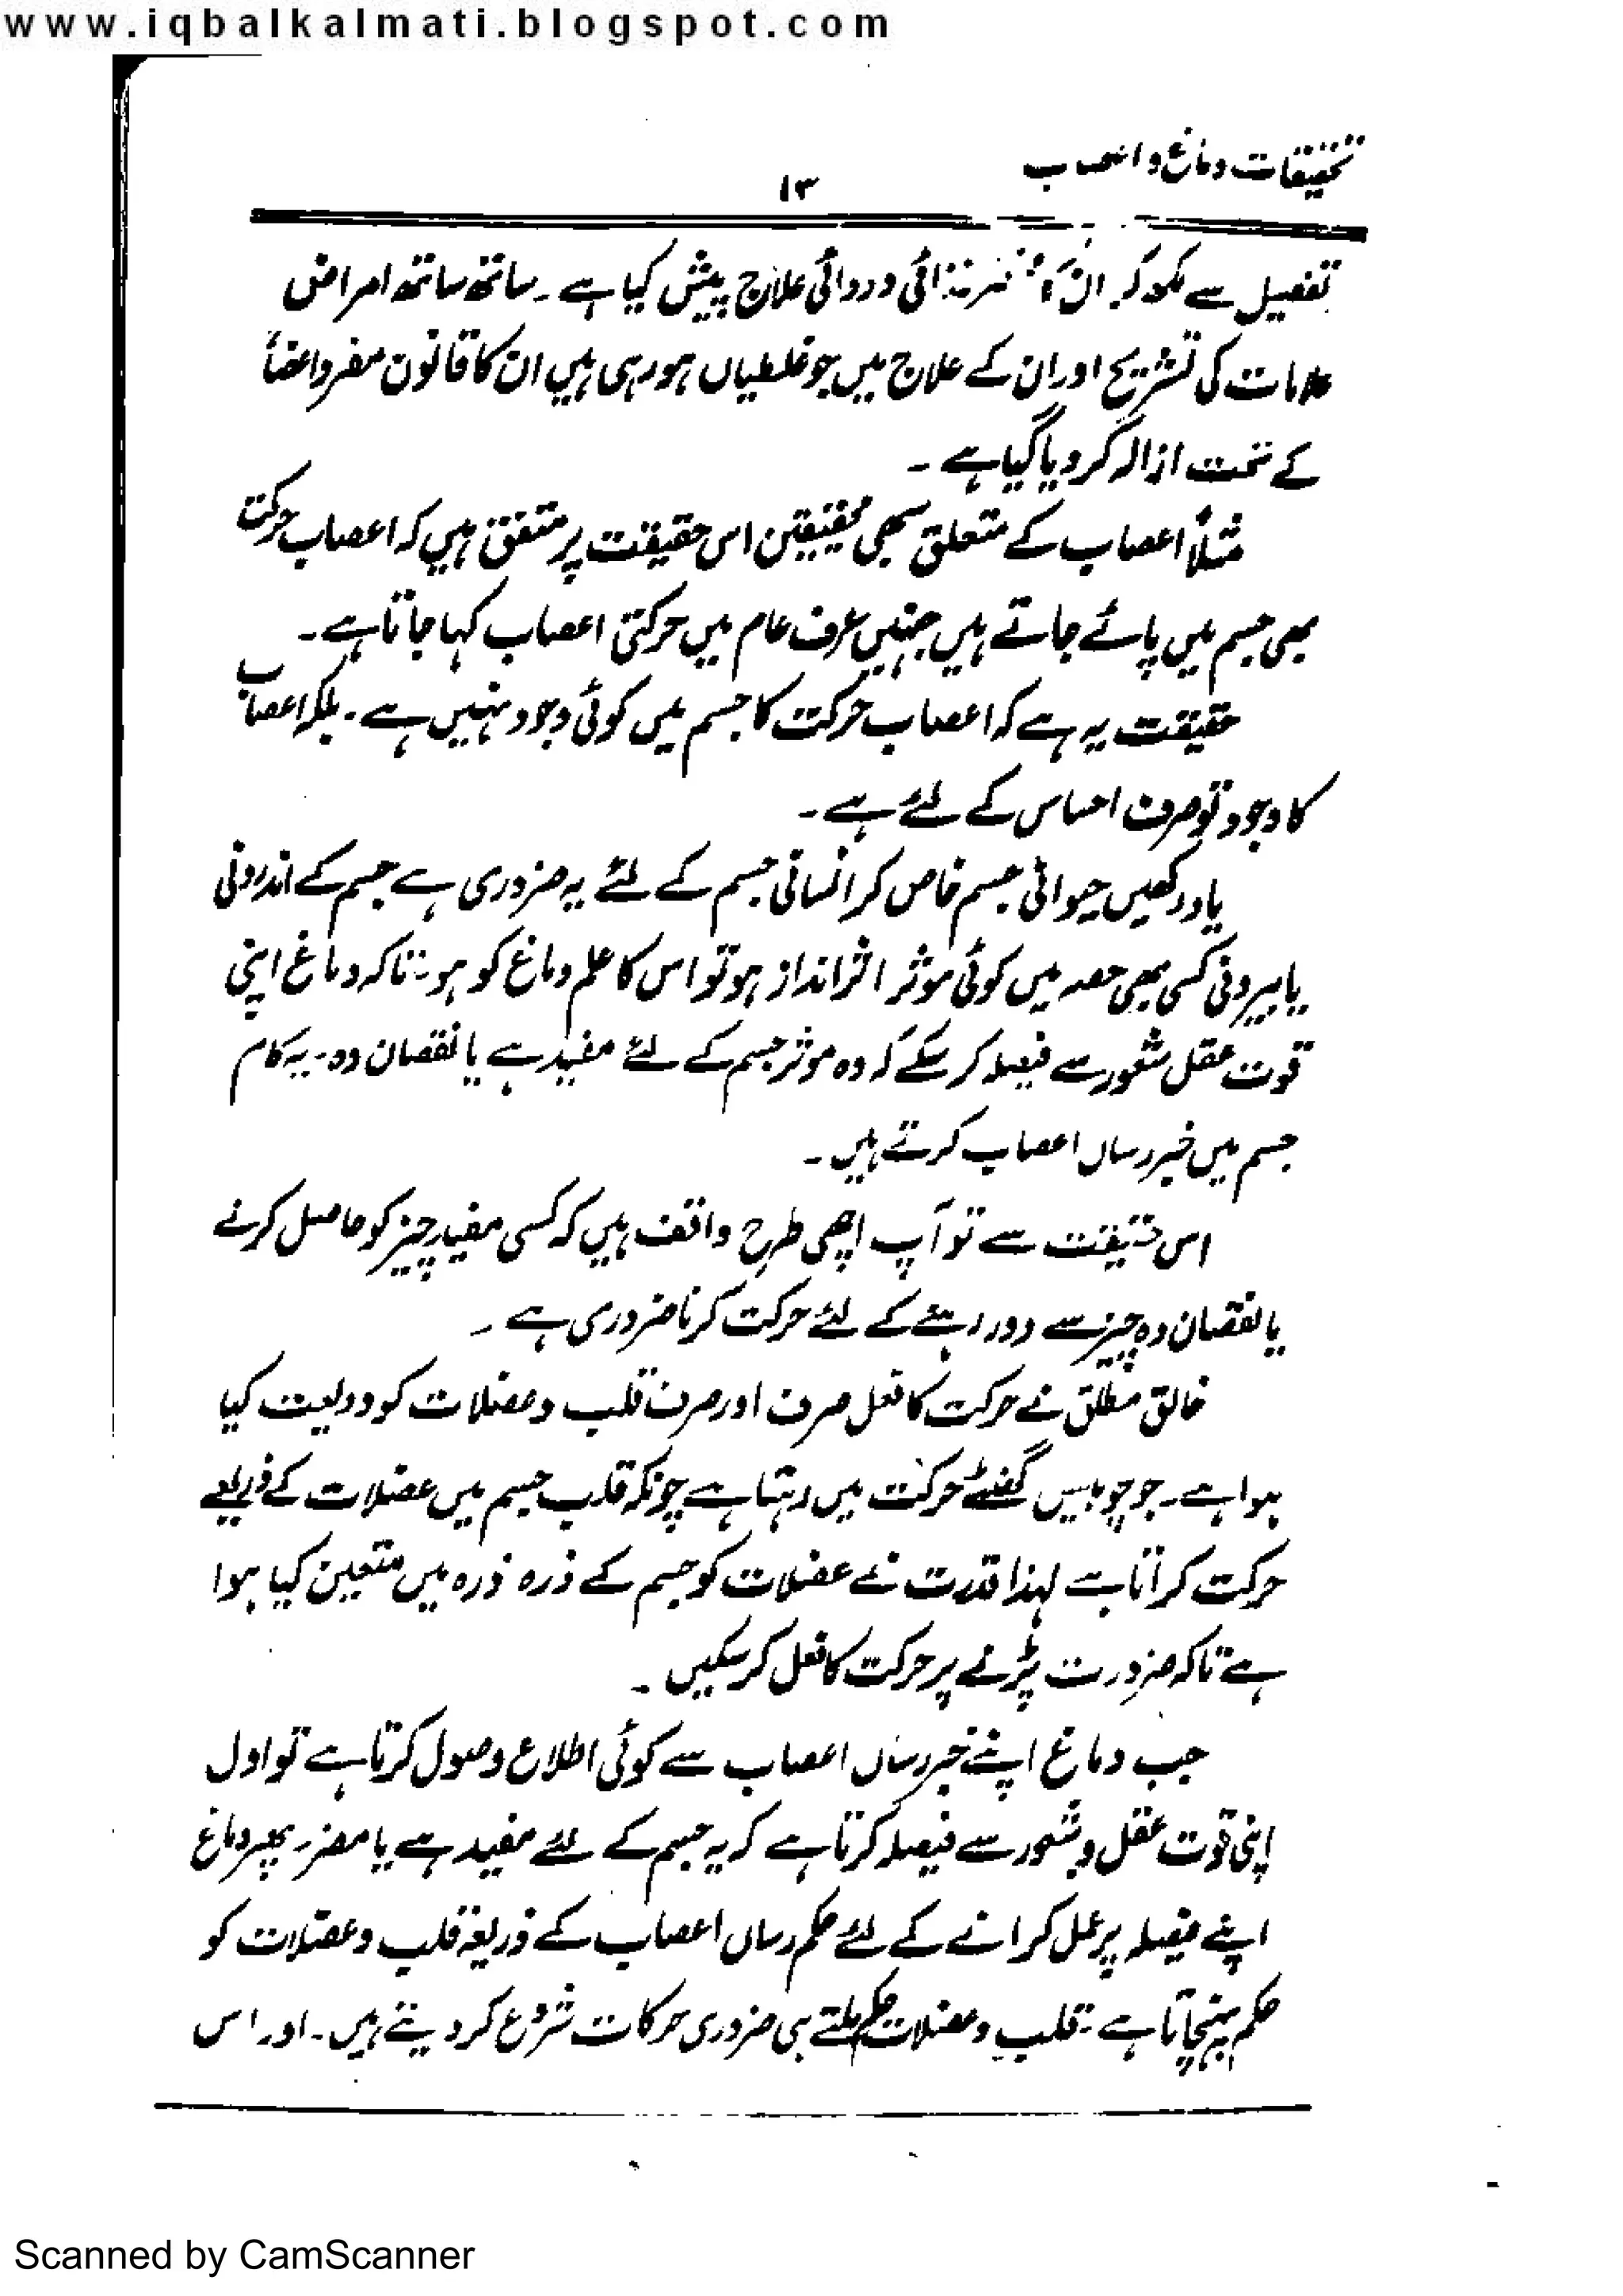 www.iqbalkalmati.blogspot.com
تحقیقات دماغ و اعصاب
۱۳
تفصیل سے لکھ کر ان کا غذائی و دوائی علاج پیش کیا ہے۔ ساتھ ساتھ امراض
علامات کی تشریح اور ان کے علاج میں جو غلطیاں ہو رہی ہیں ان کا قانون مفرد اعضأ
کے تحت ازالہ کر دیا گیا ہے۔
مثلاً اعصاب کے متعلق سبھی محققیقین اس حقیقت پر متفق ہیں کہ اعصاب حرکت
بھی جسم میں پائے جاتے ہیں جنہیں عرف عام میں حرکتی اعصاب کہا جاتا ہے۔
حقیقت یہ ہے کہ اعصاب حرکت کا جسم میں کوئی وجود نہیں ہے۔ بلکہ اعصاب
کا وجود تو صرف احساس کے لئے ہے۔
یاد رکھیں حیوانی جسم خاص کر انسانی جسم کے لئے یہ ضروری ہے جسم کے اندرونی
یا بیرونی کسی بھی حصہ میں کوئی موثر اثر انداز ہو تو اس کا علم دماغ کو ہو۔ تاکہ دماغ اپنی
قوت عقل شعور سے فیصلہ کر سکے کہ وہ موثر جسم کے لئے مفید ہے یا نقصان دہ۔ یہ کام
جسم میں خبر رساں اعصاب کرتے ہیں۔
اس حقیقت سے تو آپ اچھی طرح واقف ہیں کہ کسی مفید چیز کو حاصل کرنے
یا نقصان دہ چیز سے دور رہنے کے لئے حرکت کرنا ضروری ہے۔
خالق مطلق نے حرکت کا فعل صرف اور صرف قلب و عضلات کو ودیعت کیا
ہوا ہے۔ جو چوبیس گھنٹے حرکت میں رہتا ہے چونکہ قلب جسم میں عضلات کے ذریعے
حرکت کراتا ہے لہذا قدرت نے عضلات کو جسم کے ذرہ ذرہ میں متعین کیا ہوا
ہے تاکہ ضرورت پڑنے پر حرکت کا فعل کر سکیں۔
جب دماغ اپنے خبر رساں اعصاب سے کوئی اطلاع وصول کرتا ہے تو اول
اپنی قوت عقل و شعور سے فیصلہ کرتا ہے کہ یہ جسم کے لئے مفید ہے یا مضر۔ پھر دماغ
اپنے فیصلہ پر عمل کرانے کے لئے حکم رساں اعصاب کے ذریعہ قلب و عضلات کو
حکم پہنچاتا ہے۔ قلب و عضلات حکم ملتے ہی ضروری حرکات شروع کر دیتے ہیں۔ اور اس
Scanned by CamScanner